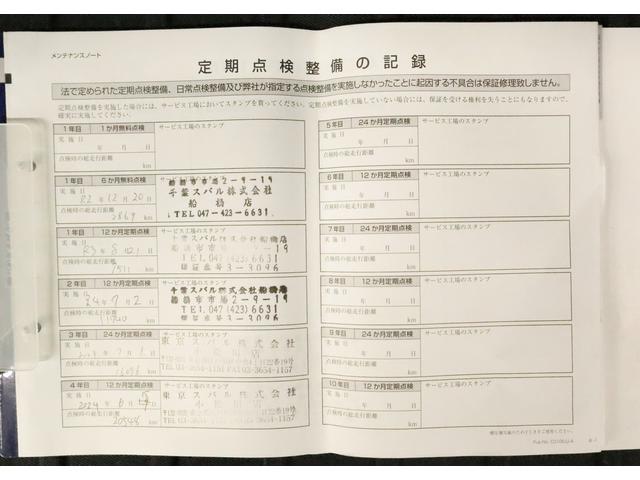 メンテナンスノート
定期点検整備の記録
法で定められた定期点検整備、日常点検整備及び弊社が指定する点検整備を実施しなかったことに起因する不具合は保証修理致しません。
定期点検整備を実施した場合には、サービス工場においてスタンプを貰ってください。定期点検整備を実施していない場合には、保証を受ける権利を失うことにもなりますので、
確実に実施してください。
1年目 1か月無料点検 サービス工場のスタンプ
実施日 年 月 日
点検時の総走行距離
km
1年目 6か月無料点検
船橋市市場2-9-19
千葉スバル株式会社
船橋店
TEL 047-423-6631
実施日 R2年12月20日
点検時の総走行距離
2869 km
1年目 12か月定期点検 サービス工場のスタンプ
千葉スバル株式会社船橋店
船橋市市場2-9-19
TEL.047(423)6631
認証番号3-3096
実施日 R3
点検時の総走行距離
km
2年目 12か月定期点検
千葉スバル株式会社船橋店
船橋市市場2-9-19
TEL.047(423)6631
認証番号3-3096
実施日 R4年7月2日
点検時の総走行距離
km
3年目 24か月定期点検 サービス工場のスタンプ
東京スバル株式会社
TEL 03-3651-1151 FAX 03-3654-1157
実施日
点検時の総走行距離
km
4年目 12か月定期点検 サービス工場のスタンプ
東京スバル株式会社
FAX 03-3654-1157
実施日 2024年6月
点検時の総走行距離
20548 km
5年目 24か月定期点検 サービス工場のスタンプ
実施日 年 月 日
点検時の総走行距離
km
6年目 12か月定期点検 サービス工場のスタンプ
実施日 年 月 日
点検時の総走行距離
km
7年目 24か月定期点検 サービス工場のスタンプ
実施日 年 月 日
点検時の総走行距離
km
8年目 12か月定期点検 サービス工場のスタンプ
実施日 年 月 日
点検時の総走行距離
km
9年目 24か月定期点検 サービス工場のスタンプ
実施日 年 月 日
点検時の総走行距離
km
10年目 12か月定期点検 サービス工場のスタンプ
実施日 年 月 日
点検時の総走行距離
km